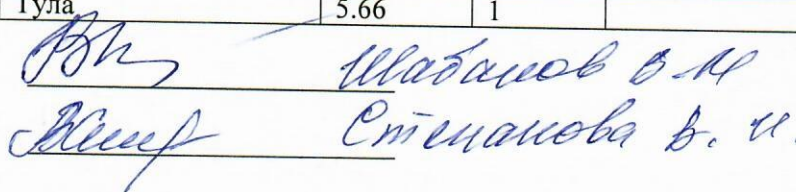 Тула 5.66 1
Шабанов В.М
Степанова В. И.